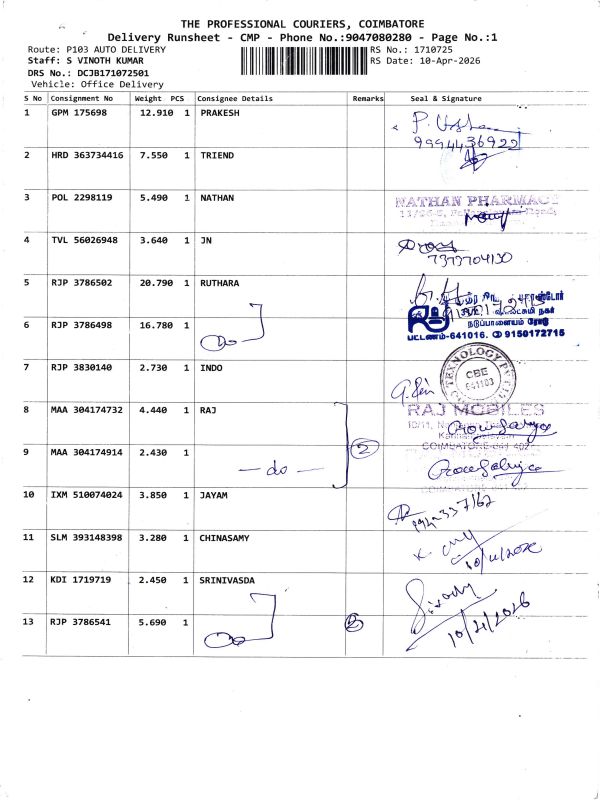 THE PROFESSIONAL COURIERS, COIMBATORE
Delivery Runsheet - CMP - Phone No.:9047080280 - Page No.:1
Route: P103 AUTO DELIVERY RS No.: 1710725
Staff: S VINOTH KUMAR RS Date: 10-Apr-2026
DRS No.: DCJB171072501
Vehicle: Office Delivery
S No Consignment No Weight PCS Consignee Details Remarks Seal & Signature
1 GPM 175698 12.910 1 PRAKESH
9994436922
2 HRD 363734416 7.550 1 TRIEND
3 POL 2298119 5.490 1 NATHAN
NATHAN PHARMACY
4 TVL 56026948 3.640 1 JN
7373704130
5 RJP 3786502 20.790 1 RUTHARA
நடுப்பாளையம் ரோடு
6 RJP 3786498 16.780 1
பட்டணம்-641016. 9150172715
7 RJP 3830140 2.730 1 INDO
CBE
641103
8 MAA 304174732 4.440 1 RAJ
RAJ MOBILES
2
9 MAA 304174914 2.430 1
- do -
10 IXM 510074024 3.850 1 JAYAM
11 SLM 393148398 3.280 1 CHINASAMY
10/4/2026
12 KDI 1719719 2.450 1 SRINIVASDA
13 RJP 3786541 5.690 1
10/4/2026